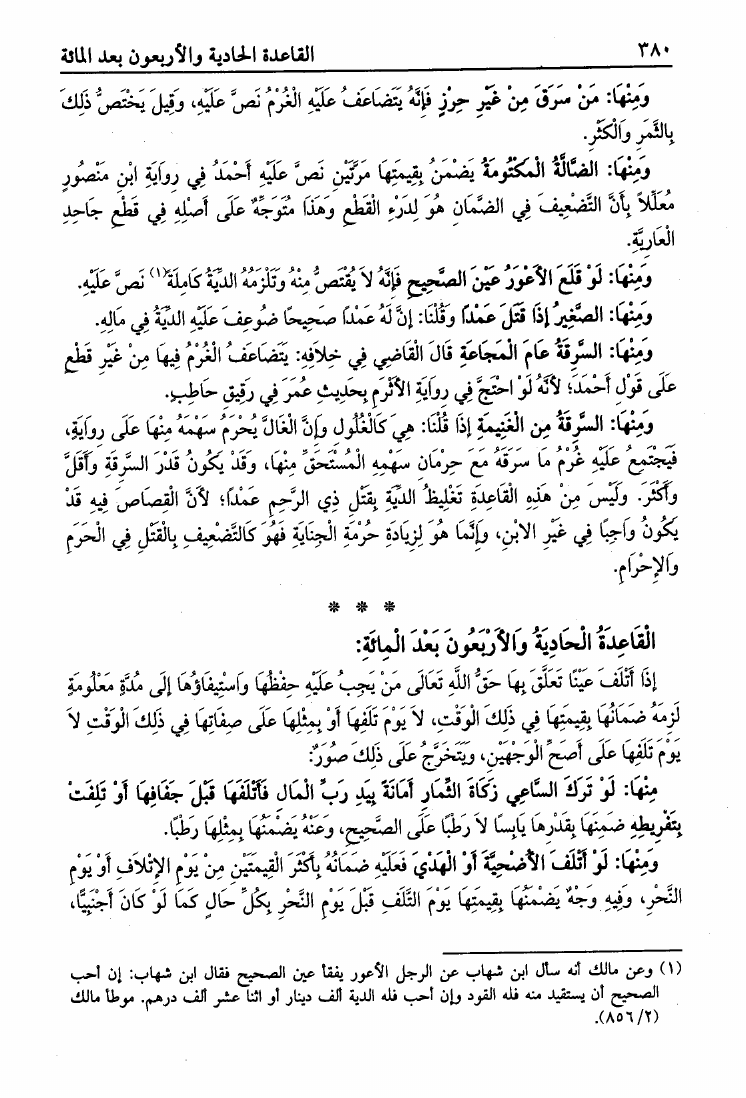 ٣٨٠ القاعدة الحادية والأربعون بعد المائة
وَمِنْهَا: مَنْ سَرَقَ مِنْ غَيْرِ حِرْزٍ فَإِنَّهُ يَتَضَاعَفُ عَلَيْهِ الْغُرْمُ نَصَّ عَلَيْهِ، وَقِيلَ يَخْتَصُّ ذَلِكَ
بِالثَّمَرِ وَالْكَثْرِ.
وَمِنْهَا: الضَّالَّةُ الْمَكْتُومَةُ يَضْمَنُ بِقِيمَتِهَا مَرَّتَيْنِ نَصَّ عَلَيْهِ أَحْمَدُ فِي رِوَايَةِ ابْنِ مَنْصُورٍ
مُعَلِّلاً بِأَنَّ التَّضْعِيفَ فِي الضَّمَانِ هُوَ لِدَرْءِ الْقَطْعِ وَهَذَا مُتَوَجِّهٌ عَلَى أَصْلِهِ فِي قَطْعِ جَاحِدِ
الْعَارِيَّةِ.
وَمِنْهَا: لَوْ قَلَعَ الأَعْوَرُ عَيْنَ الصَّحِيحِ فَإِنَّهُ لاَ يُقْتَصُّ مِنْهُ وَتَلْزَمُهُ الدِّيَةُ كَامِلَةً(١) نَصَّ عَلَيْهِ.
وَمِنْهَا: الصَّغِيرُ إِذَا قَتَلَ عَمْدًا وَقُلْنَا: إِنَّ لَهُ عَمْدًا صَحِيحًا ضُوعِفَ عَلَيْهِ الدِّيَةُ فِي مَالِهِ.
وَمِنْهَا: السَّرِقَةُ عَامَ الْمَجَاعَةِ قَالَ الْقَاضِي فِي خِلاَفِهِ: يَتَضَاعَفُ الْغُرْمُ فِيهَا مِنْ غَيْرِ قَطْعٍ
عَلَى قَوْلِ أَحْمَدَ؛ لأَنَّهُ لَوْ احْتَجَّ فِي رِوَايَةِ الأَثْرَمِ بِحَدِيثِ عُمَرَ فِي رَقِيقِ حَاطِبٍ.
وَمِنْهَا: السَّرِقَةُ مِنَ الْغَنِيمَةِ إِذَا قُلْنَا: هِيَ كَالْغُلُولِ وَإِنَّ الْغَالَّ يُحْرَمُ سَهْمَهُ مِنْهَا عَلَى رِوَايَةٍ،
فَيَجْتَمِعُ عَلَيْهِ غُرْمُ مَا سَرَقَهُ مَعَ حِرْمَانِ سَهْمِهِ الْمُسْتَحَقِّ مِنْهَا، وَقَدْ يَكُونُ قَدْرَ السَّرِقَةِ وَأَقَلَّ
وَأَكْثَرَ. وَلَيْسَ مِنْ هَذِهِ الْقَاعِدَةِ تَغْلِيظُ الدِّيَةِ بِقَتْلِ ذِي الرَّحِمِ عَمْدًا؛ لأَنَّ الْقِصَاصَ فِيهِ قَدْ
يَكُونُ وَاجِبًا فِي غَيْرِ الابْنِ، وَإِنَّمَا هُوَ لِزِيَادَةِ حُرْمَةِ الْجِنَايَةِ فَهُوَ كَالتَّضْعِيفِ بِالْقَتْلِ فِي الْحَرَمِ
وَالإِحْرَامِ.
* * *
الْقَاعِدَةُ الْحَادِيَةُ وَالأَرْبَعُونَ بَعْدَ الْمِائَةِ:
إِذَا أَتْلَفَ عَيْنًا تَعَلَّقَ بِهَا حَقُّ اللَّهِ تَعَالَى مَنْ يَجِبُ عَلَيْهِ حِفْظُهَا وَاسْتِيفَاؤُهَا إِلَى مُدَّةٍ مَعْلُومَةٍ
لَزِمَهُ ضَمَانُهَا بِقِيمَتِهَا فِي ذَلِكَ الْوَقْتِ، لاَ يَوْمَ تَلَفِهَا أَوْ بِمِثْلِهَا عَلَى صِفَاتِهَا فِي ذَلِكَ الْوَقْتِ لاَ
يَوْمَ تَلَفِهَا عَلَى أَصَحِّ الْوَجْهَيْنِ، وَيَتَخَرَّجُ عَلَى ذَلِكَ صُوَرٌ:
مِنْهَا: لَوْ تَرَكَ السَّاعِي زَكَاةَ الثِّمَارِ أَمَانَةً بِيَدِ رَبِّ الْمَالِ فَأَتْلَفَهَا قَبْلَ جَفَافِهَا أَوْ تَلِفَتْ
بِتَفْرِيطِهِ ضَمِنَهَا بِقَدْرِهَا يَابِسًا لاَ رَطْبًا عَلَى الصَّحِيحِ، وَعَنْهُ يَضْمَنُهَا بِمِثْلِهَا رَطْبًا.
وَمِنْهَا: لَوْ أَتْلَفَ الأُضْحِيَّةَ أَوْ الْهَدْيَ فَعَلَيْهِ ضَمَانُهُ بِأَكْثَرِ الْقِيمَتَيْنِ مِنْ يَوْمِ الإِتْلاَفِ أَوْ يَوْمِ
النَّحْرِ، وَفِيهِ وَجْهٌ يَضْمَنُهَا بِقِيمَتِهَا يَوْمَ التَّلَفِ قَبْلَ يَوْمِ النَّحْرِ بِكُلِّ حَالٍ كَمَا لَوْ كَانَ أَجْنَبِيًّا،
(١) وعن مالك أنه سأل ابن شهاب عن الرجل الأعور يفقأ عين الصحيح فقال ابن شهاب: إن أحب
الصحيح أن يستقيد منه فله القود وإن أحب فله الدية ألف دينار أو اثنا عشر ألف درهم. موطأ مالك
(٨٥٦/٢).